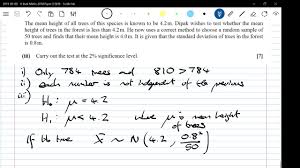 The mean height of all trees of this species is known to be 4.2 m. Dipak wishes to test whether the mean
height of trees in the forest is less than 4.2 m. He now uses a correct method to choose a random sample of
50 trees and finds that their mean height is 4.0 m. It is given that the standard deviation of trees in the forest
is 0.8 m.
(iii) Carry out the test at the 2% significance level. [7]
i) Only 784 trees and 810 > 784
ii) each number is not independent of the previous
iii) H₀: μ = 4.2
H₁: μ < 4.2 where μ is mean height
of trees
If H₀ true X̄ ~ N(4.2, 0.8²/50)